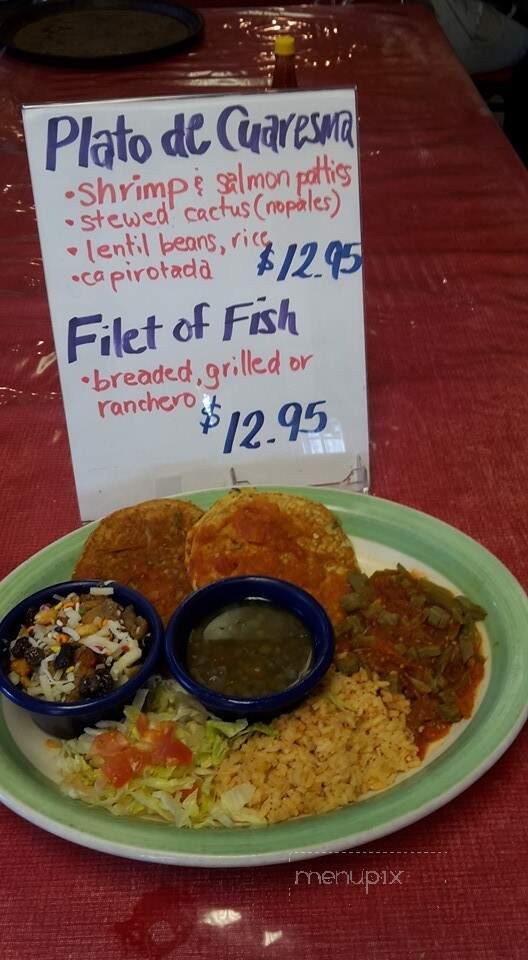 Plato de Cuaresma
• shrimp & salmon patties
• stewed cactus (nopales)
• lentil beans, rice
• capirotada $12.95
Filet of Fish
• breaded, grilled or
ranchero $12.95
menupix